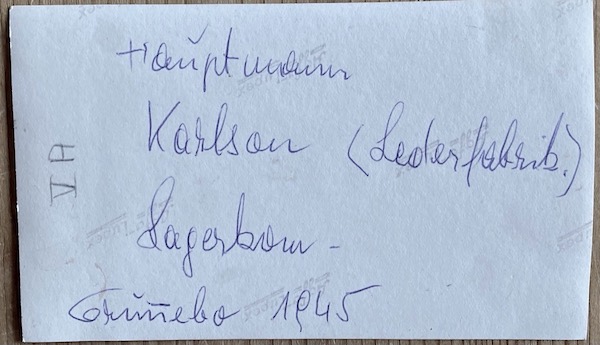 Hauptmann
Karlson (Lederfabrik.)
Lagerkom-
Grünebo 1945
VA